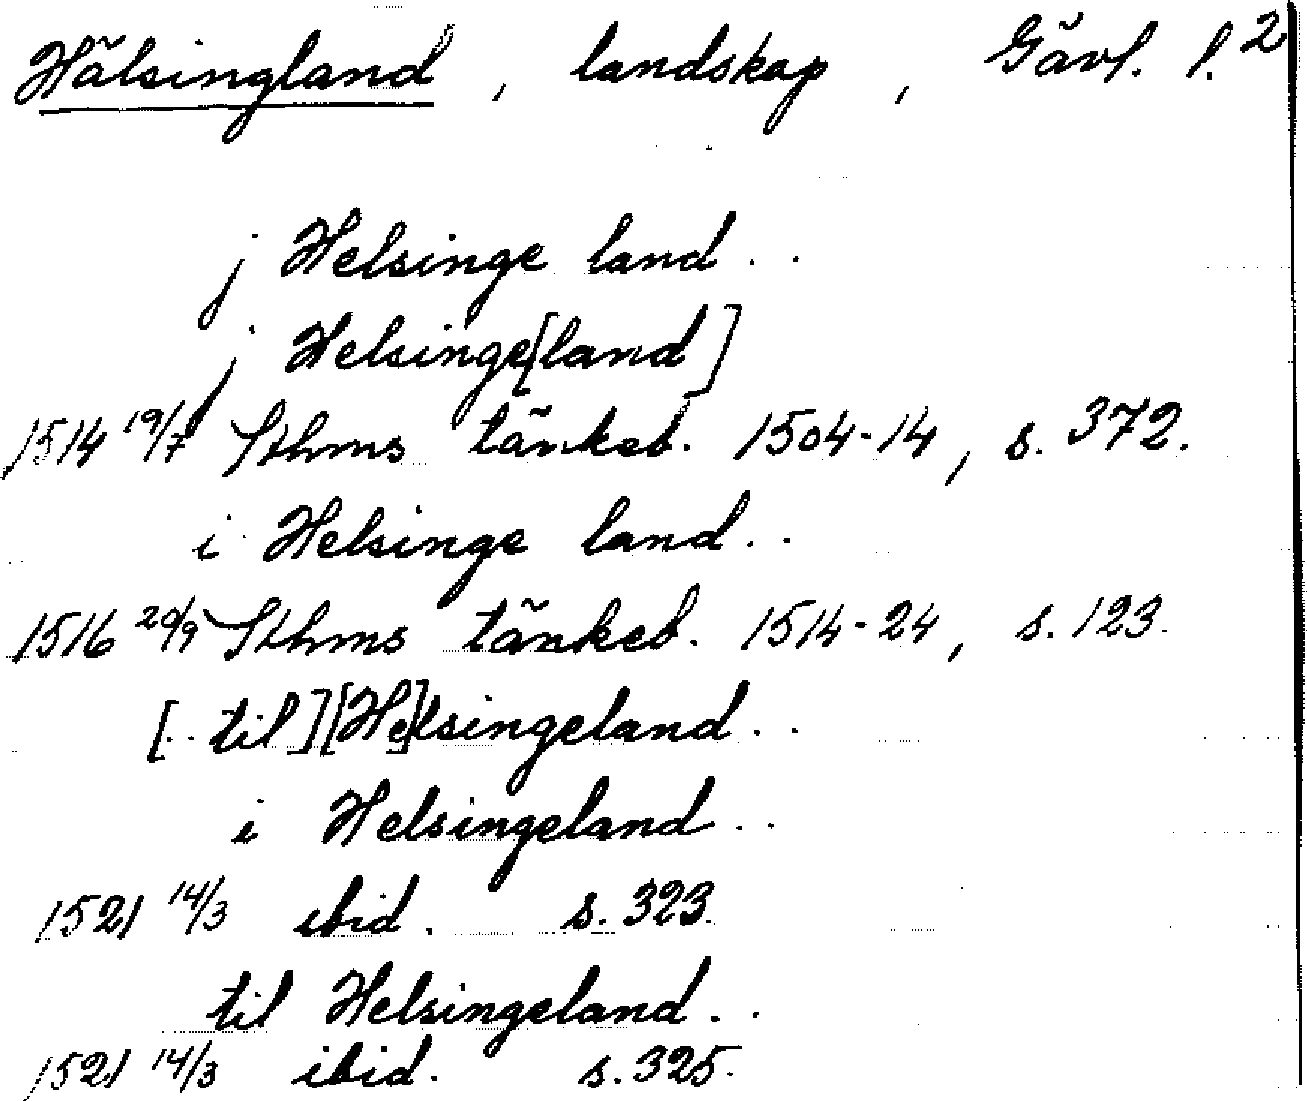 Hälsingland, landskap, Gävl. l. 2
j Helsinge land . .
j Helsinge[land]
1514 19/7 Sthms tänkeb. 1504-14, s. 372.
i Helsinge land . .
1516 20/9 Sthms tänkeb. 1514-24, s. 123.
[. . til] [He]lsingeland . .
i Helsingeland . .
1521 14/3 ibid. s. 323.
til Helsingeland . .
1521 14/3 ibid. s. 325.